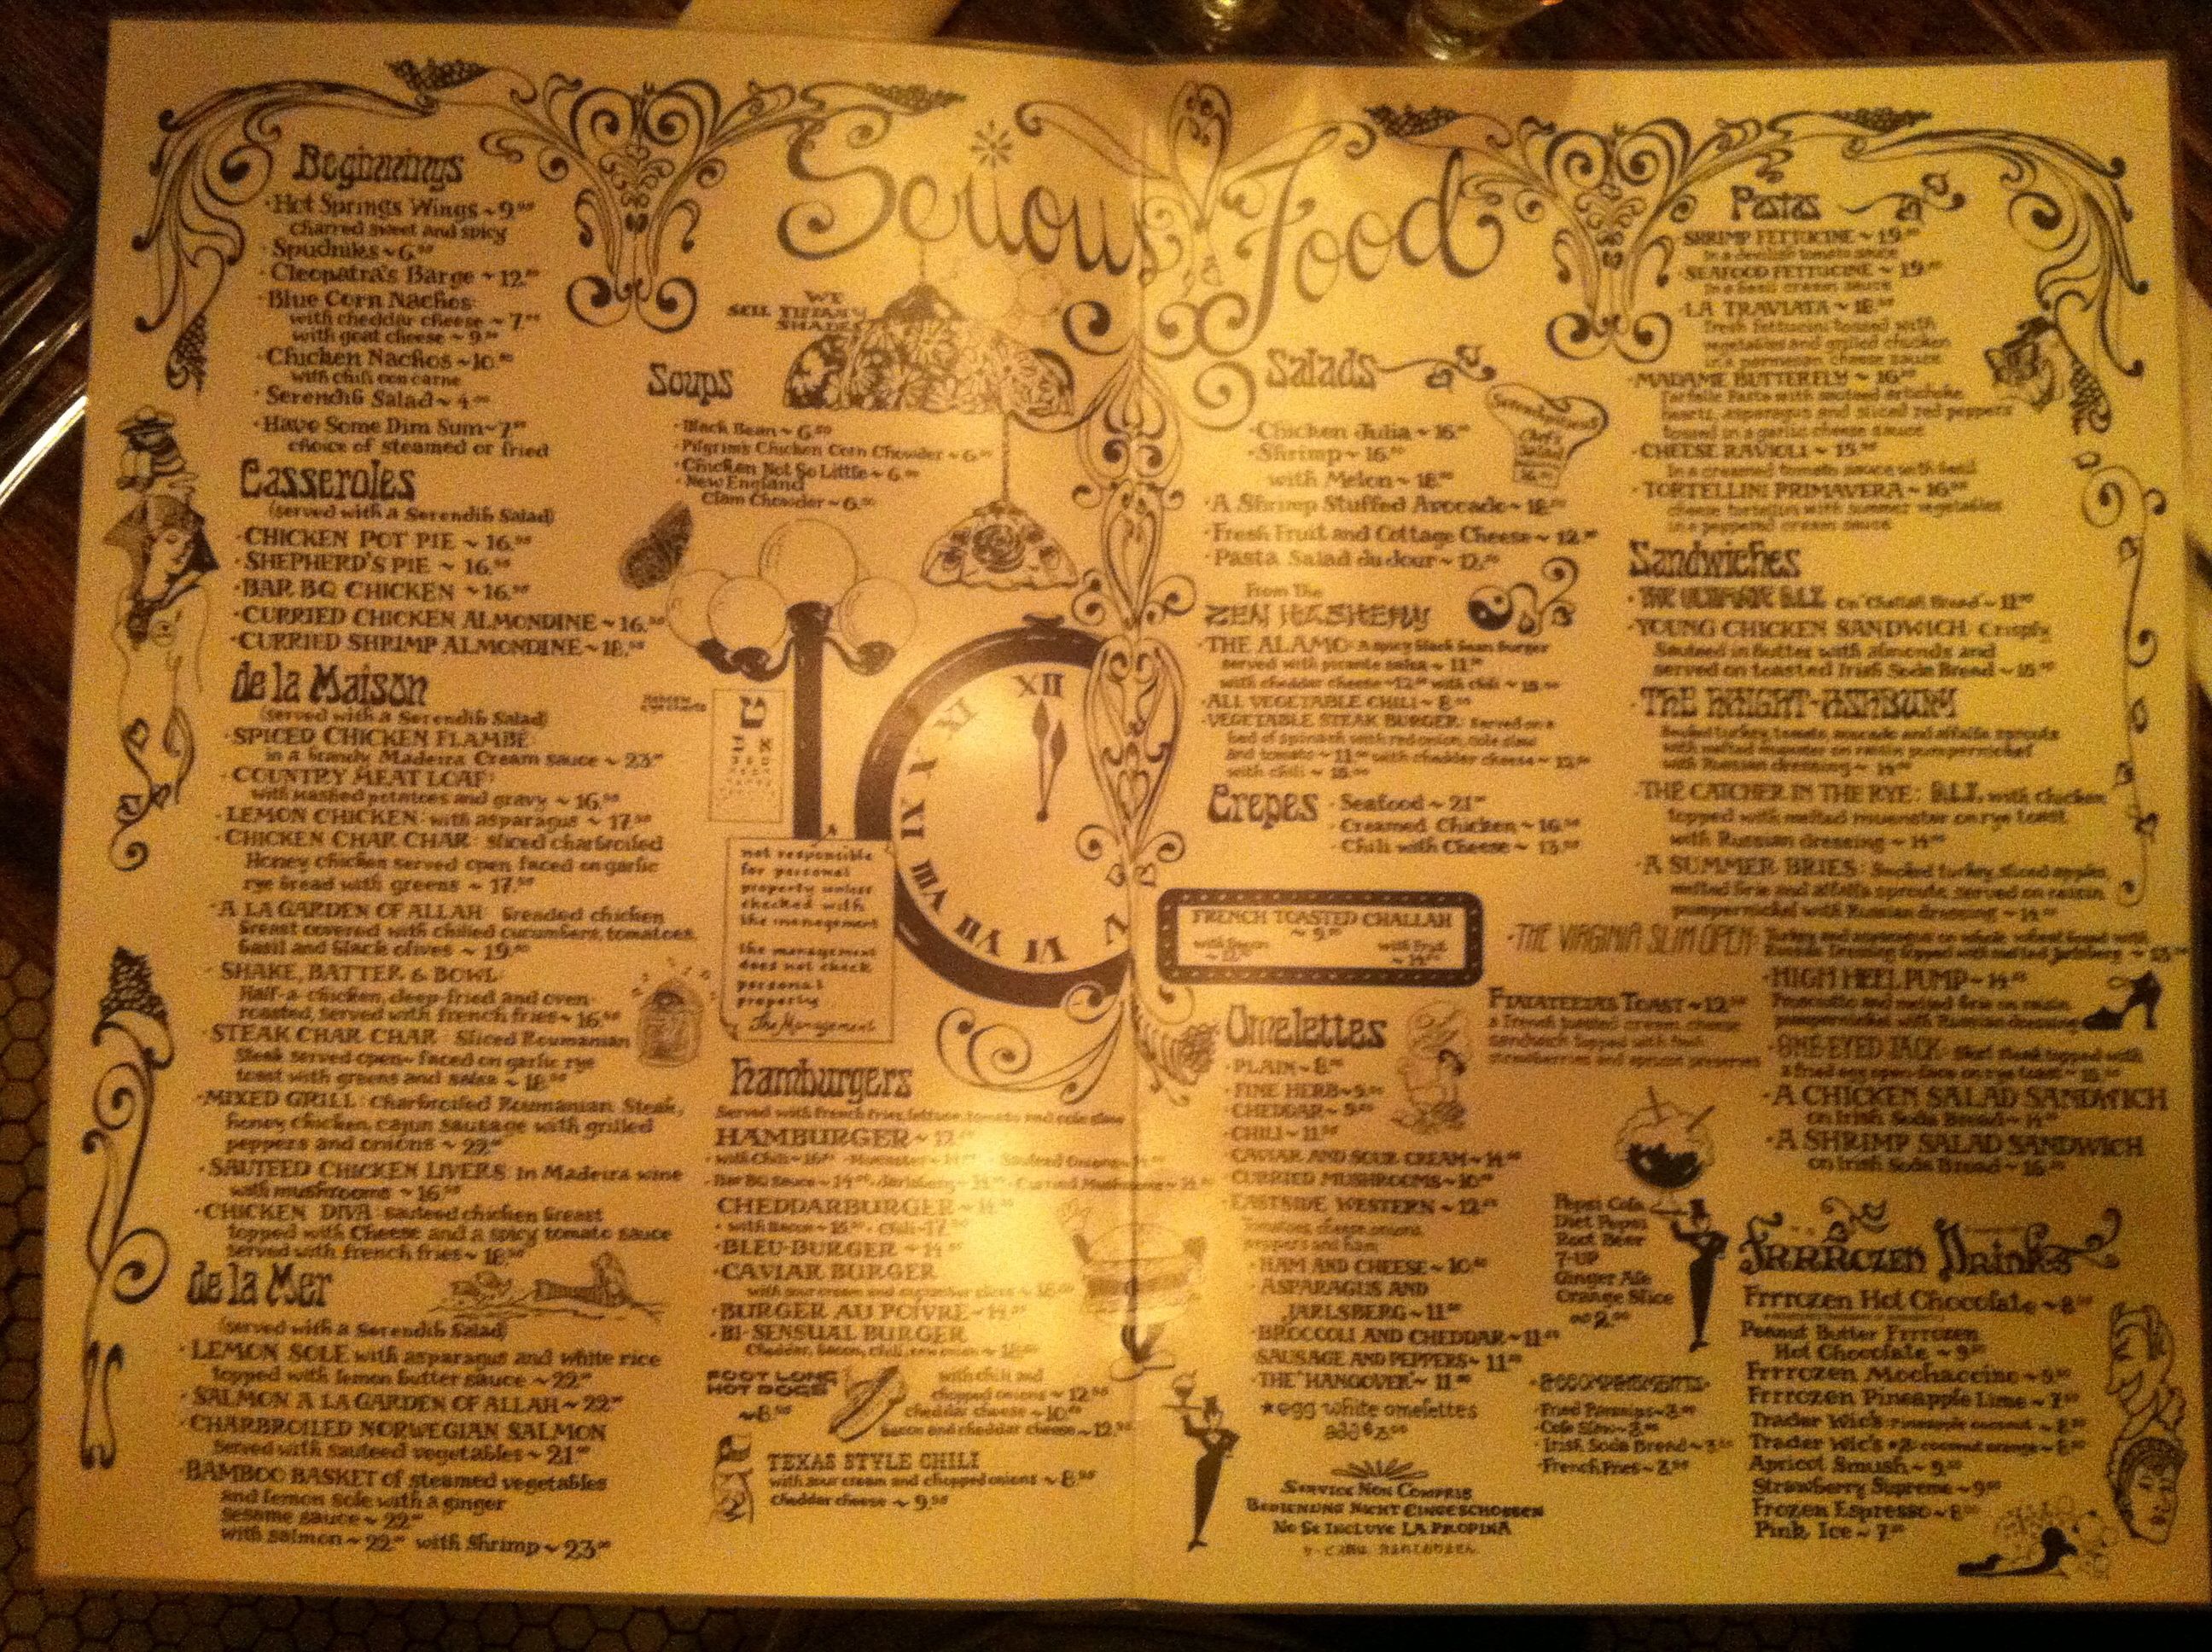 Serious Food
Beginnings
Hot Springs Wings ~ 9.50
charred sweet and spicy
Spudniks ~ 6.50
Cleopatra's Barge ~ 12.50
Blue Corn Nachos:
with cheddar cheese ~ 7.
with goat cheese ~ 9.
Chicken Nachos ~ 10.
with chili con carne
Serendib Salad ~ 4.
Have Some Dim Sum ~ 7.
choice of steamed or fried
Casseroles
(served with a Serendib Salad)
CHICKEN POT PIE ~ 16.50
SHEPHERD'S PIE ~ 16.50
BAR BQ CHICKEN ~ 16.50
CURRIED CHICKEN ALMONDINE ~ 16.50
CURRIED SHRIMP ALMONDINE ~ 18.50
de la Maison
(served with a Serendib Salad)
SPICED CHICKEN FLAMBÉ:
in a brandy Madeira Cream sauce ~ 23.
COUNTRY MEAT LOAF:
with mashed potatoes and gravy ~ 16.50
LEMON CHICKEN: with asparagus ~ 17.50
CHICKEN CHAR CHAR: Sliced charbroiled
Honey chicken served open faced on garlic
rye bread with greens ~ 17.50
A LA GARDEN OF ALLAH: Breaded chicken
breast covered with chilled cucumbers, tomatoes,
basil and black olives ~ 19.
SHAKE, BATTER & BOWL:
Half-a-chicken, deep-fried and oven-
roasted, served with french fries ~ 16.50
STEAK CHAR CHAR: Sliced Roumanian
Steak served open-faced on garlic rye
toast with greens and salsa ~ 18.50
MIXED GRILL: Charbroiled Roumanian Steak,
honey chicken, cajun sausage with grilled
peppers and onions ~ 22.
SAUTEED CHICKEN LIVERS: In Madeira wine
with mushrooms ~ 16.50
CHICKEN DIVA: sauteed chicken breast
topped with Cheese and a spicy tomato sauce
served with french fries ~ 18.50
de la Mer
(served with a Serendib Salad)
LEMON SOLE with asparagus and white rice
topped with lemon butter sauce ~ 22.
SALMON A LA GARDEN OF ALLAH ~ 22.
CHARBROILED NORWEGIAN SALMON
Served with sauteed vegetables ~ 21.
BAMBOO BASKET of steamed vegetables
and lemon sole with a ginger
sesame sauce ~ 22.
with salmon ~ 22. with Shrimp ~ 23.
WE
SELL TIFFANY
SHADES
Soups
Black Bean ~ 6.50
Pilgrim's Chicken Corn Chowder ~ 6.
Chicken Not So Little ~ 6.
New England
Clam Chowder ~ 6.50
XII
XI
X
IX
VIII
VII
VI
V
not responsible
for personal
property unless
checked with
the management
the management
does not check
personal
property
The Management
hamburgers
Served with french fries, lettuce, tomato and cole slaw
HAMBURGER ~ 12.
CHEDDARBURGER ~ 14.
with Bacon ~ Chili ~ 17.
BLEU-BURGER ~ 14.
CAVIAR BURGER
with sour cream and cucumber slices ~ 18.
BURGER AU POIVRE ~ 14.
BI-SENSUAL BURGER
Cheddar, bacon, chili, raw onion ~ 18.
FOOT LONG
HOT DOGS
~ 8.50
with chili and
chopped onions ~ 12.50
cheddar cheese ~ 10.
bacon and cheddar cheese ~ 12.50
TEXAS STYLE CHILI
with sour cream and chopped onions ~ 8.50
Cheddar cheese ~ 9.50
Salads
Chicken Julia ~ 16.
Shrimp ~ 16.
with Melon ~ 18.
A Shrimp Stuffed Avocado ~ 18.
Fresh Fruit and Cottage Cheese ~ 12.
Pasta Salad du Jour ~ 12.
Chef's
Salad
From The
ZEN HASHERY
THE ALAMO: A spicy Black Bean Burger
served with picante salsa ~ 11.
with cheddar cheese ~ 12. with chili ~ 15.
ALL VEGETABLE CHILI ~ 8.
VEGETABLE STEAK BURGER: Served on a
bed of spinach with red onion, cole slaw
and tomato ~ 11. with cheddar cheese ~ 12.
with chili ~ 15.
Crepes
Seafood ~ 21.
Creamed Chicken ~ 16.
Chili with Cheese ~ 13.
FRENCH TOASTED CHALLAH
~ 9.
with Bacon
with Fruit
Omelettes
PLAIN ~ 8.
FINE HERB ~ 9.
CHEDDAR ~ 9.
CHILI ~ 11.
CAVIAR AND SOUR CREAM ~ 14.
CURRIED MUSHROOMS ~ 10.
EASTSIDE WESTERN ~ 12.
Tomatoes, cheese, onions
peppers and ham
HAM AND CHEESE ~ 10.
ASPARAGUS AND
JARLSBERG ~ 11.
BROCCOLI AND CHEDDAR ~ 11.
SAUSAGE AND PEPPERS ~ 11.
THE "HANGOVER" ~ 11.
*egg white omelettes
add $3.
SERVICE NON COMPRIS
BEDIENUNG NICHT EINGESCHOSSEN
NO SE INCLUYE LA PROPINA
TOAST ~ 12.
a french toasted cream cheese
sandwich topped with fresh
strawberries and apricot preserves
Pepsi Cola
Diet Pepsi
Root Beer
7-UP
Ginger Ale
Orange Slice
2.
ACCOMPANIMENTS
Cole Slaw ~ 3.
Irish Soda Bread ~ 3.
French Fries ~ 3.
Pastas
SHRIMP FETTUCINE ~ 19.
in a devilish tomato sauce
SEAFOOD FETTUCINE ~ 19.
in a basil cream sauce
LA TRAVIATA ~ 18.
fresh fettucini tossed with
vegetables and grilled chicken
in a parmesan cheese sauce
MADAME BUTTERFLY ~ 16.
Farfalle Pasta with sauteed artichoke
hearts, asparagus and sliced red peppers
tossed in a garlic cheese sauce
CHEESE RAVIOLI ~ 15.
in a creamed tomato sauce with basil
TORTELLINI PRIMAVERA ~ 16.
cheese tortellini with summer vegetables
in a peppered cream sauce
Sandwiches
THE ULTIMATE B.L.T. On "Challah Bread" ~ 11.
YOUNG CHICKEN SANDWICH: Crisply
Sauteed in Butter with almonds and
served on toasted Irish Soda Bread ~ 15.
THE HAIGHT-ASHBURY
Smoked turkey, tomato, avocado and alfalfa sprouts
with melted muenster on raisin pumpernickel
with Russian dressing ~ 14.
THE CATCHER IN THE RYE: B.L.T. with Chicken
topped with melted muenster on rye toast
with Russian dressing ~ 14.
A SUMMER BRIES: Smoked turkey, sliced apples,
melted brie and alfalfa sprouts, served on raisin
pumpernickel with Russian dressing ~ 14.
THE VIRGINIA SLIM OPEN: Turkey and asparagus on whole wheat bread with
Russian Dressing topped with melted Jarlsberg ~ 15.
HIGH HEEL PUMP ~ 14.
Prosciutto and melted brie on raisin
pumpernickel with Russian dressing
ONE EYED JACK: topped with
a fried egg open-face on rye toast ~
A CHICKEN SALAD SANDWICH
on Irish Soda Bread ~ 14.
A SHRIMP SALAD SANDWICH
on Irish Soda Bread ~ 16.
FRRROZEN Drinks
Frrrozen Hot Chocolate ~ 8.
Peanut Butter Frrrozen
Hot Chocolate ~ 9.
Frrrozen Mochaccino ~ 9.
Frrrozen Pineapple Lime ~ 7.
Trader Vic's pineapple coconut ~ 8.
Trader Vic's #2 coconut orange ~ 8.
Apricot Smush ~ 9.
Strawberry Supreme ~ 9.
Frozen Espresso ~ 8.
Pink Ice ~ 7.